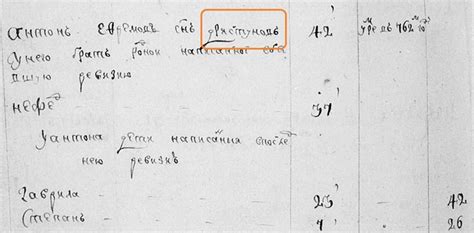 антонъ ефремовъ снъ христуновъ 42 умре въ 762 м году
у него братъ родной написанной въ бы
вшую ревизию
нефед 37
у антона дети написания после
нею ревизиъ
гаврила 23 42
степанъ 7 26